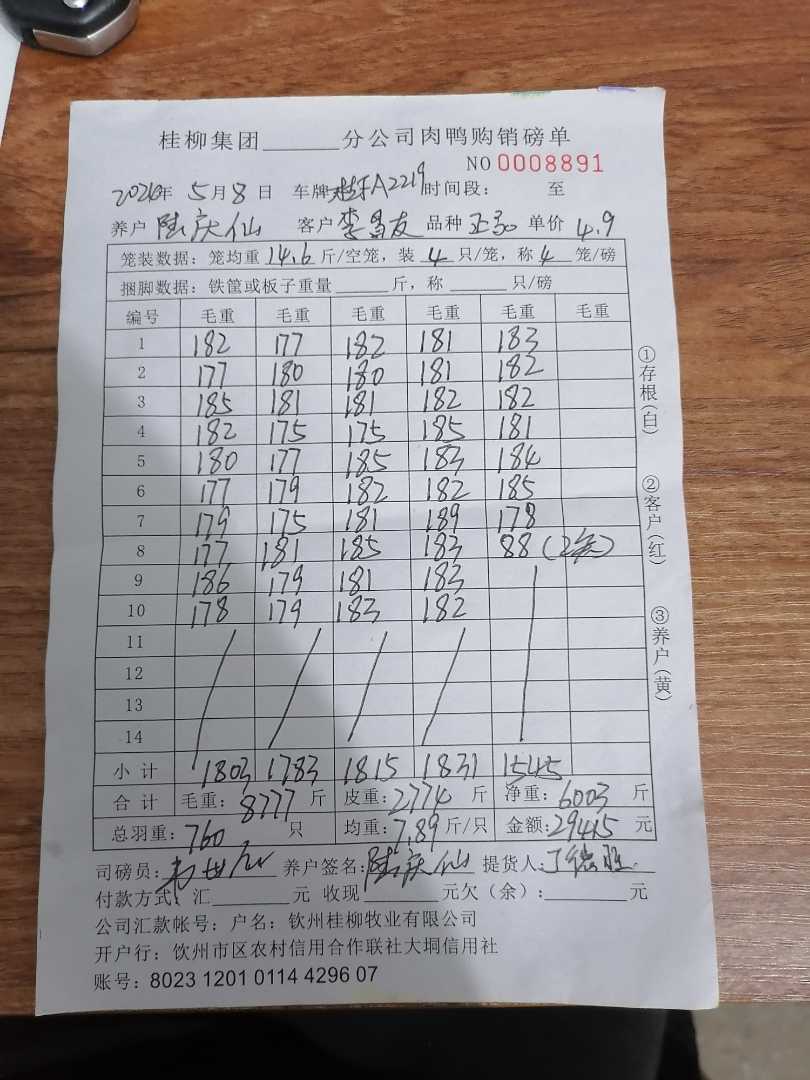 桂柳集团______分公司肉鸭购销磅单
NO 0008891
2026年 5月8日 车牌 桂A2219 时间段: 至
养户 陆庆仙 客户 李昌友 品种 单价 4.9
笼装数据: 笼均重 14.6 斤/空笼, 装 4 只/笼, 称 4 笼/磅
捆脚数据: 铁筐或板子重量______斤, 称______只/磅
编号 毛重 毛重 毛重 毛重 毛重 毛重
1 182 177 182 181 183
2 177 180 180 181 182
3 185 181 181 182 182
4 182 175 175 185 181
5 180 177 185 183 184
6 177 179 182 182 185
7 179 175 181 189 178
8 177 181 185 183 88 (2笼)
9 186 179 181 183
10 178 179 183 182
11
12
13
14
小计 1803 1783 1815 1831 1545
合计 毛重: 8777 斤 皮重: 2774 斤 净重: 6003 斤
总羽重: 760 只 均重: 7.89 斤/只 金额: 29415 元
司磅员: 养户签名: 陆庆仙 提货人:
付款方式: 汇______元 收现______元欠(余):______元
公司汇款帐号: 户名: 钦州桂柳牧业有限公司
开户行: 饮州市区农村信用合作联社大垌信用社
账号: 8023 1201 0114 4296 07
①存根(白)
②客户(红)
③养户(黄)